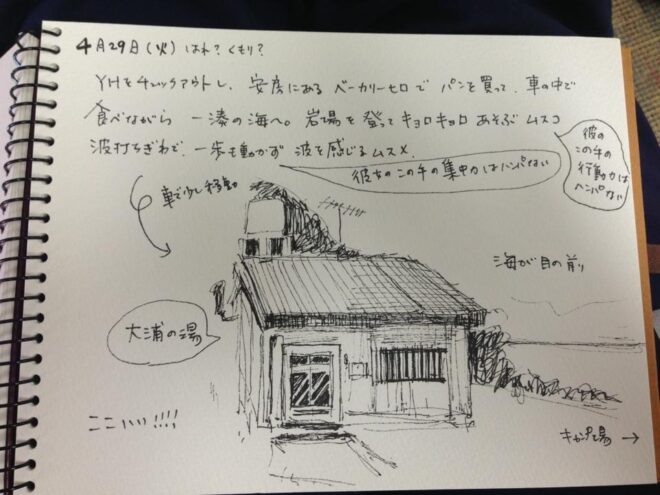 4月29日(火) はれ？くもり？
YHをチェックアウトし、安房にある ベーカリーヒロで パンを買って、車の中で
食べながら 一湊の海へ。岩場を登ってキョロキョロ あそぶ ムスコ
波打ちぎわで、一歩も動かず 波を感じるムスメ.
彼の
この手の
行動力は
ハンパない
彼女のこの手の集中力はハンパない
車で少し移動
海が目の前
大浦の湯
ここいい!!!!
キャンプ場 →